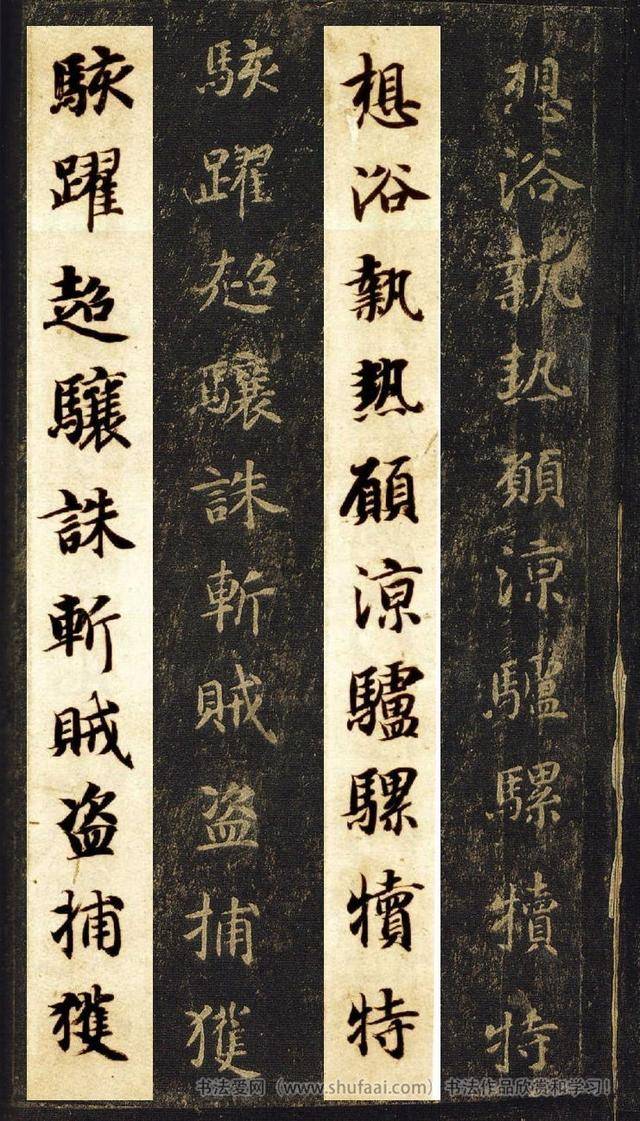 想浴執熱願涼驢騾犢特
想浴執熱願涼驢騾犢特
駭躍超驤誅斬賊盜捕獲
駭躍超驤誅斬賊盜捕獲
书法爱网（www.shufaai.com）书法作品欣赏和学习！